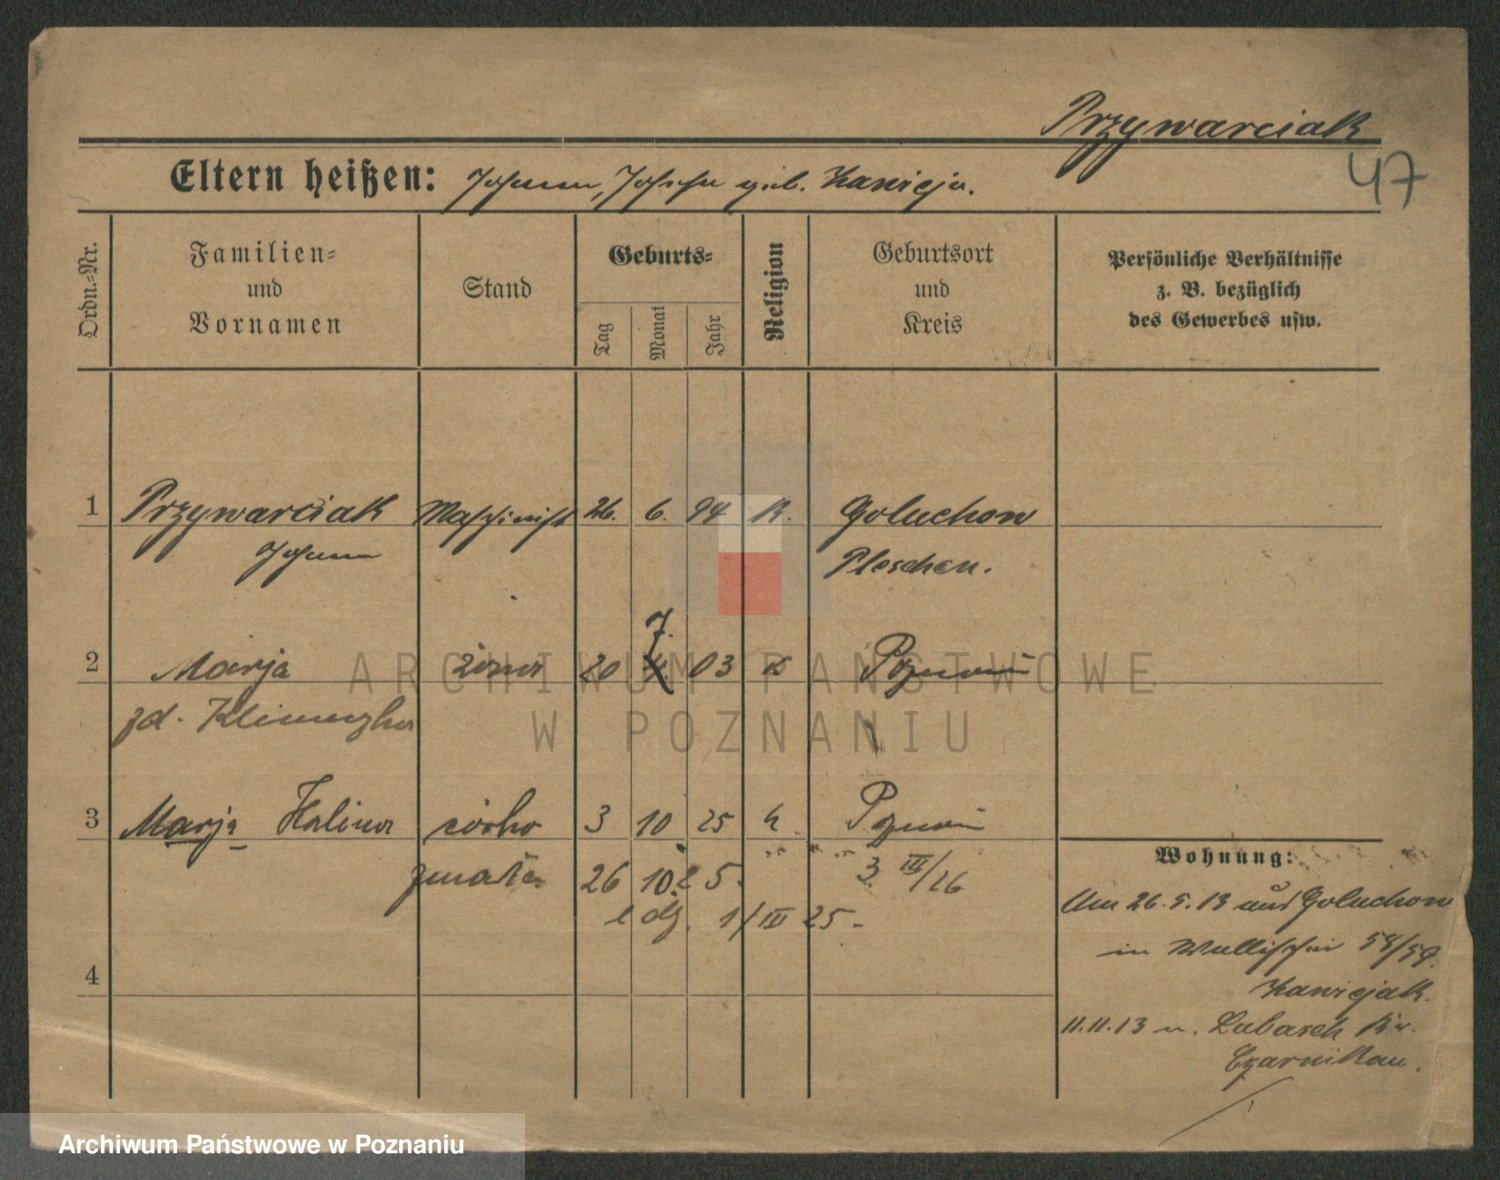 Przywarciak
47
Eltern heißen: Johann, Josefa geb. Kawicja.
Ordn.-Nr.
Familien=
und
Vornamen
Stand
Geburts=
Tag
Monat
Jahr
Religion
Geburtsort
und
Kreis
Persönliche Verhältnisse
z. B. bezüglich
des Gewerbes usw.
1 Przywarciak Maschinist 26. 6. 94 K. Goluchow
Johann Pleschen.
7.
2 Marja żona 20 4. 03 k Poznań
zd.
3 Marja Halina córka 3 10 25 k. Poznań
zmarła 26 10. 25. 3. III/26
1/III 25-
4
Wohnung:
Am 26.5.13 aus Goluchow
in Wallischei 58/59.
Kawicjak.
11.11.13 n. Lubasch Kr.
Czarnikau.
ARCHIWUM PAŃSTWOWE
W POZNANIU
Archiwum Państwowe w Poznaniu